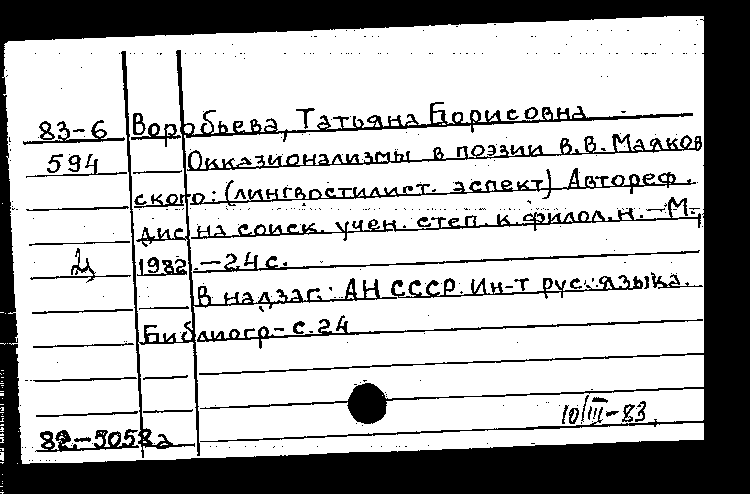 83-6 Воробьева, Татьяна Борисовна
594 Окказионализмы в поэзии В.В. Маяков
ского: (лингвостилист. аспект) Автореф.
дис на соиск. учен. степ. к.филол.н. – М.,
1982. – 24 с.
В надзаг.: АН СССР. Ин-т рус. языка.
Библиогр – с. 24
10/III-83.
82-5058а